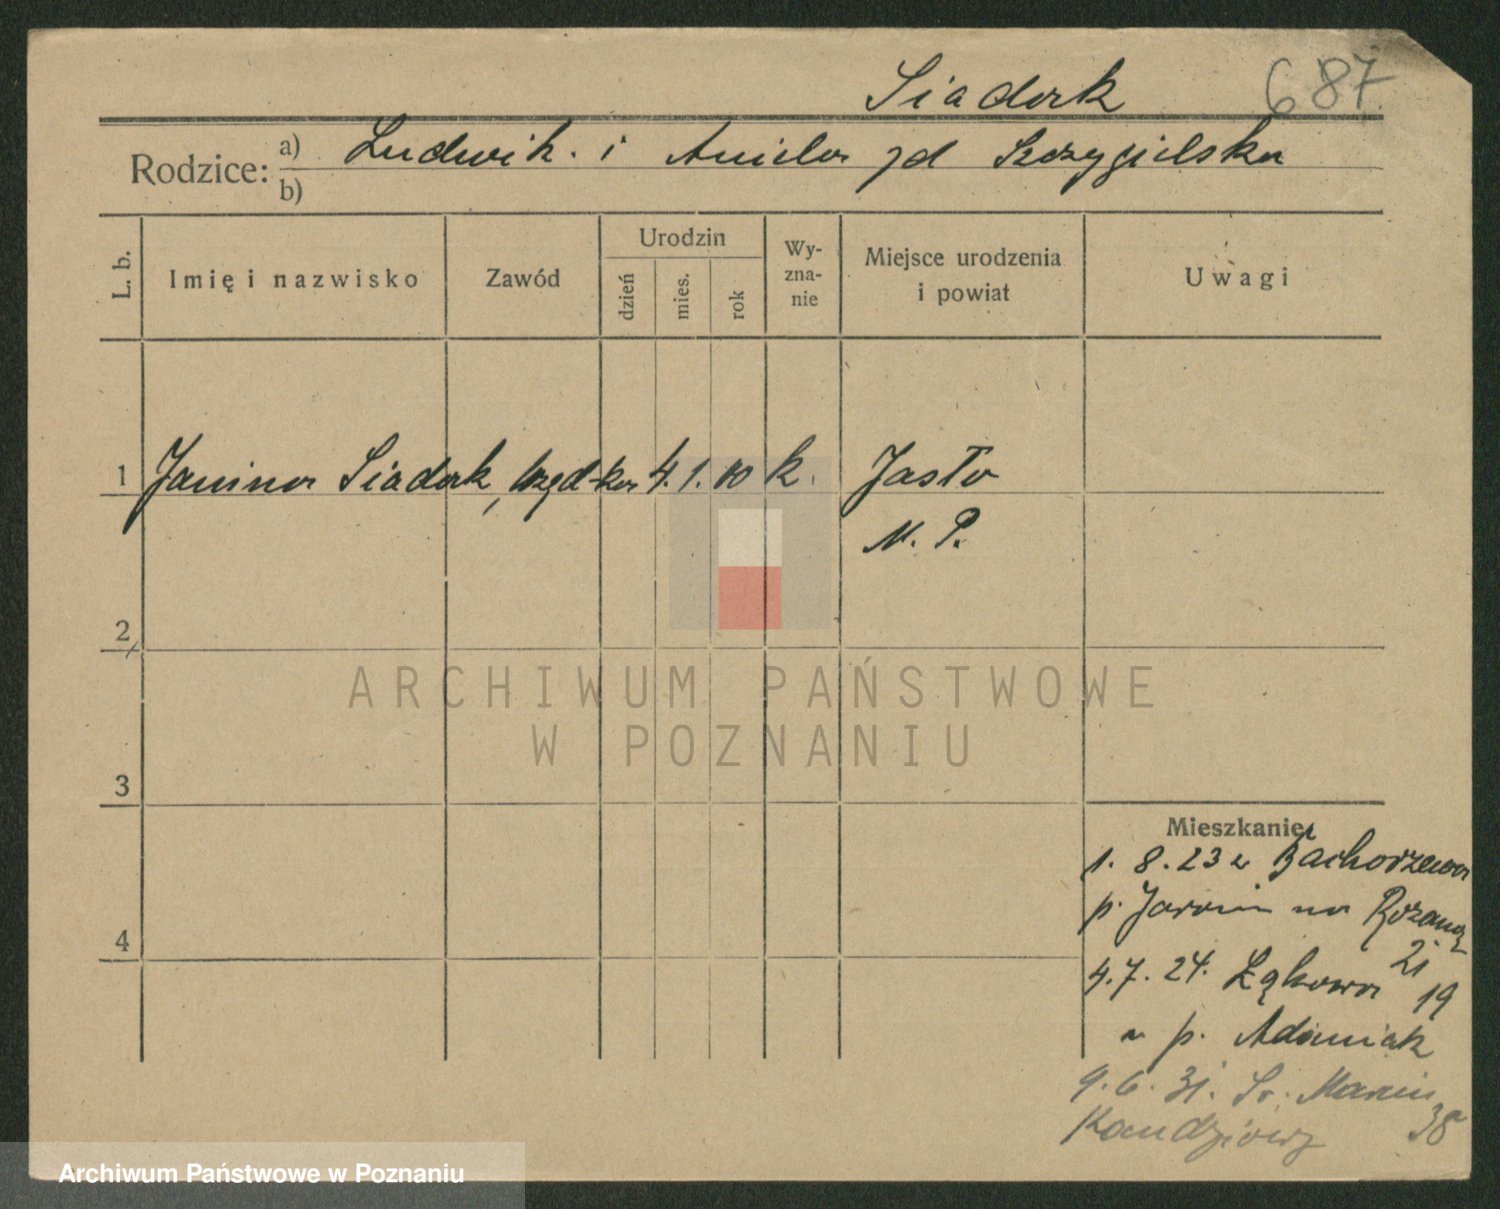 Siadak 687
Rodzice: a) Ludwik. i Aniela zd Szczygielska
b)
L. b. Imię i nazwisko Zawód Urodzin dzień mies. rok Wy-zna-nie Miejsce urodzenia i powiat Uwagi
1 Janina Siadak, urzęd-ka 4. 1. 10 k. Jasło
M. P.
2
3
4
Mieszkanie:
1. 8. 23 z Bachorzewa
p. Jarocin na Różaną
21
4. 7. 24. Łąkowa 19
u p. Adamiak
9. 6. 31. Św. Marcin
38
ARCHIWUM PAŃSTWOWE
W POZNANIU
Archiwum Państwowe w Poznaniu